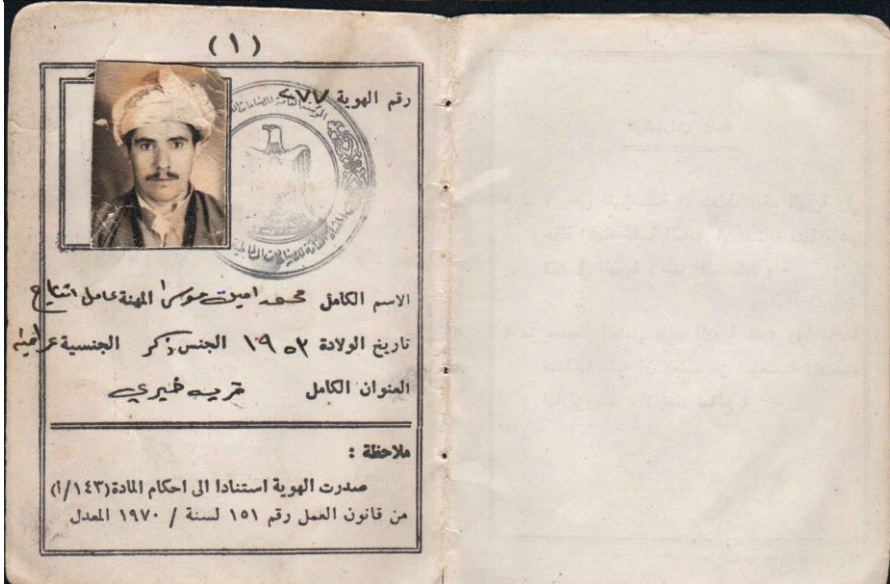 (١)
رقم الهوية ٤٧٧
الاسم الكامل محمد امين موسى المهنة عامل انتاج
تاريخ الولادة ١٩٥٣ الجنس ذكر الجنسية عراقية
العنوان الكامل قريه خيري
ملاحظة :
صدرت الهوية استنادا الى احكام المادة (١٤٣/أ)
من قانون العمل رقم ١٥١ لسنة / ١٩٧٠ المعدل